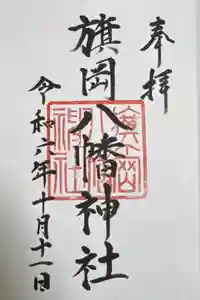 奉拝
旗岡八幡神社
令和六年十月十一日